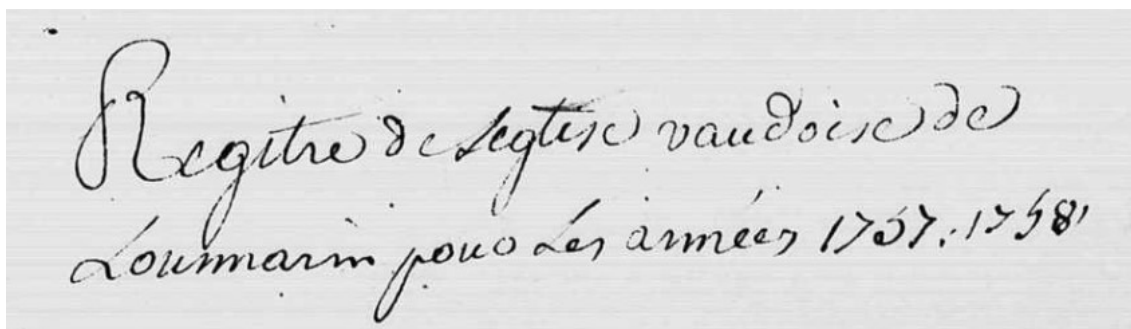 Regitre de leglise vaudoise de
Lourmarin pour Les années 1757. 1758